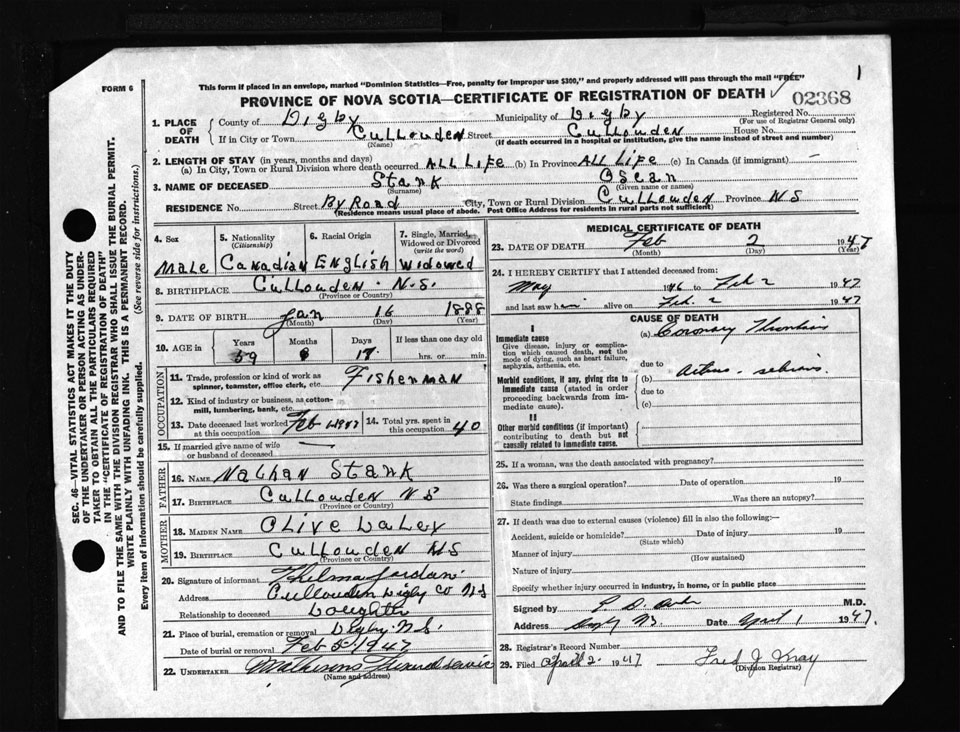 FORM 6
This form if placed in an envelope, marked "Dominion Statistics—Free, penalty for improper use $300," and properly addressed will pass through the mail "FREE"
1
PROVINCE OF NOVA SCOTIA—CERTIFICATE OF REGISTRATION OF DEATH
02368
1. PLACE OF DEATH
County of Digby Municipality of Digby Registered No.
(For use of Registrar General only)
If in City or Town Cullouden Street Cullouden House No.
(Name) (If death occurred in a hospital or institution, give the name instead of street and number)
2. LENGTH OF STAY (in years, months and days)
(a) In City, Town or Rural Division where death occurred ALL LIFE (b) In Province ALL LIFE (c) In Canada (if immigrant) —
3. NAME OF DECEASED Stark Oscan
(Surname) (Given name or names)
RESIDENCE No. Street By Road City, Town or Rural Division Cullouden Province N S
(Residence means usual place of abode. Post Office Address for residents in rural parts not sufficient)
4. Sex
Male
5. Nationality
(Citizenship)
Canadian
6. Racial Origin
English
7. Single, Married, Widowed or Divorced
(write the word)
Widowed
8. BIRTHPLACE Cullouden N.S.
(Province or Country)
9. DATE OF BIRTH Jan 16 1888
(Month) (Day) (Year)
10. AGE in
Years Months Days If less than one day old
59 17 hrs. or min.
OCCUPATION
11. Trade, profession or kind of work as spinner, teamster, office clerk, etc. Fisherman
12. Kind of industry or business, as cotton-mill, lumbering, bank, etc.
13. Date deceased last worked at this occupation Feb 1947
14. Total yrs. spent in this occupation 40
15. If married give name of wife or husband of deceased —
FATHER
16. NAME Nathan Stark
17. BIRTHPLACE Cullouden N S
(Province or Country)
MOTHER
18. MAIDEN NAME Olive
19. BIRTHPLACE Cullouden N S
(Province or Country)
20. Signature of informant Thelma Jordan
Address Cullouden Digby Co N S
Relationship to deceased Doughter
21. Place of burial, cremation or removal Digby N.S.
Date of burial or removal Feb 5 1947
22. UNDERTAKER
(Name and address)
MEDICAL CERTIFICATE OF DEATH
23. DATE OF DEATH Feb 2 1947
(Month) (Day) (Year)
24. I HEREBY CERTIFY that I attended deceased from:
May 1946 to Feb 2 1947
and last saw him alive on Feb. 2 1947
CAUSE OF DEATH
I
Immediate cause
Give disease, injury or complication which caused death, not the mode of dying, such as heart failure, asphyxia, asthenia, etc.
(a) Coronary
due to
Morbid conditions, if any, giving rise to immediate cause (stated in order proceeding backwards from immediate cause).
(b)
due to
(c)
II
Other morbid conditions (if important) contributing to death but not causally related to immediate cause.
25. If a woman, was the death associated with pregnancy?
26. Was there a surgical operation? Date of operation 19
State findings Was there an autopsy?
27. If death was due to external causes (violence) fill in also the following:—
Accident, suicide or homicide? Date of injury 19
(State which)
Manner of injury
(How sustained)
Nature of injury
Specify whether injury occurred in industry, in home, or in public place
Signed by M.D.
Address Date April 1 1947.
28. Registrar's Record Number
29. Filed April 2 1947 Fred J
(Division Registrar)
SEC. 46—VITAL STATISTICS ACT MAKES IT THE DUTY
OF THE UNDERTAKER OR PERSON ACTING AS UNDER-
TAKER TO OBTAIN ALL THE PARTICULARS REQUIRED
IN THE "CERTIFICATE OF REGISTRATION OF DEATH"
AND TO FILE THE SAME WITH THE DIVISION REGISTRAR WHO SHALL ISSUE THE BURIAL PERMIT.
WRITE PLAINLY WITH UNFADING INK. THIS IS A PERMANENT RECORD.
Every item of information should be carefully supplied. (See reverse side for instructions.)